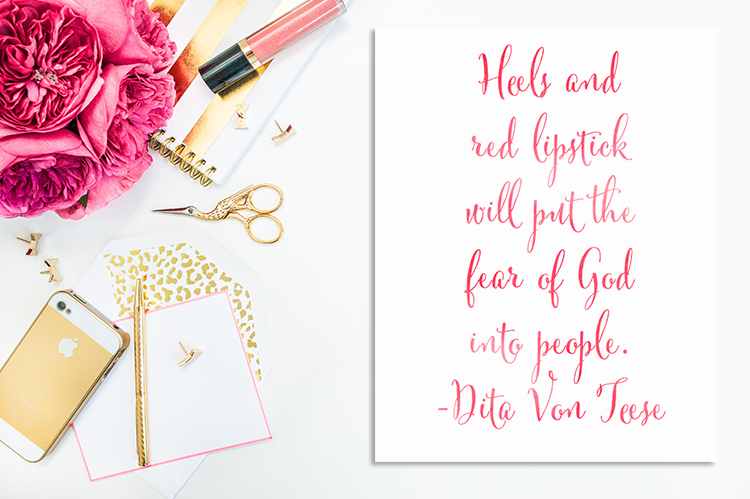 Heels and
red lipstick
will put the
fear of God
into people.
-Dita Von Teese